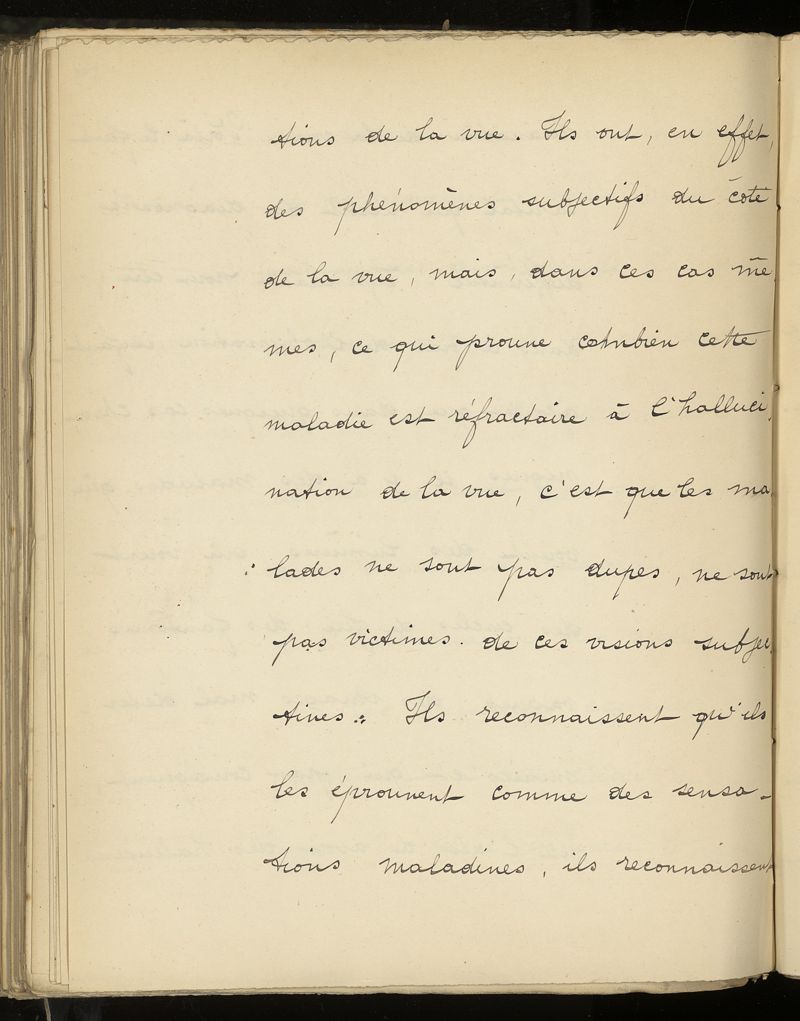 tions de la vue. Ils ont, en effet,
des phénomènes subjectifs du côté
de la vue, mais, dans ces cas mê
mes, ce qui prouve combien cette
maladie est réfractaire à l'halluci
nation de la vue, c'est que les ma
lades ne sont pas dupes, ne sont
pas victimes de ces visions subjec
tives. Ils reconnaissent qu'ils
les éprouvent comme des sensa-
tions maladives, ils reconnaissent